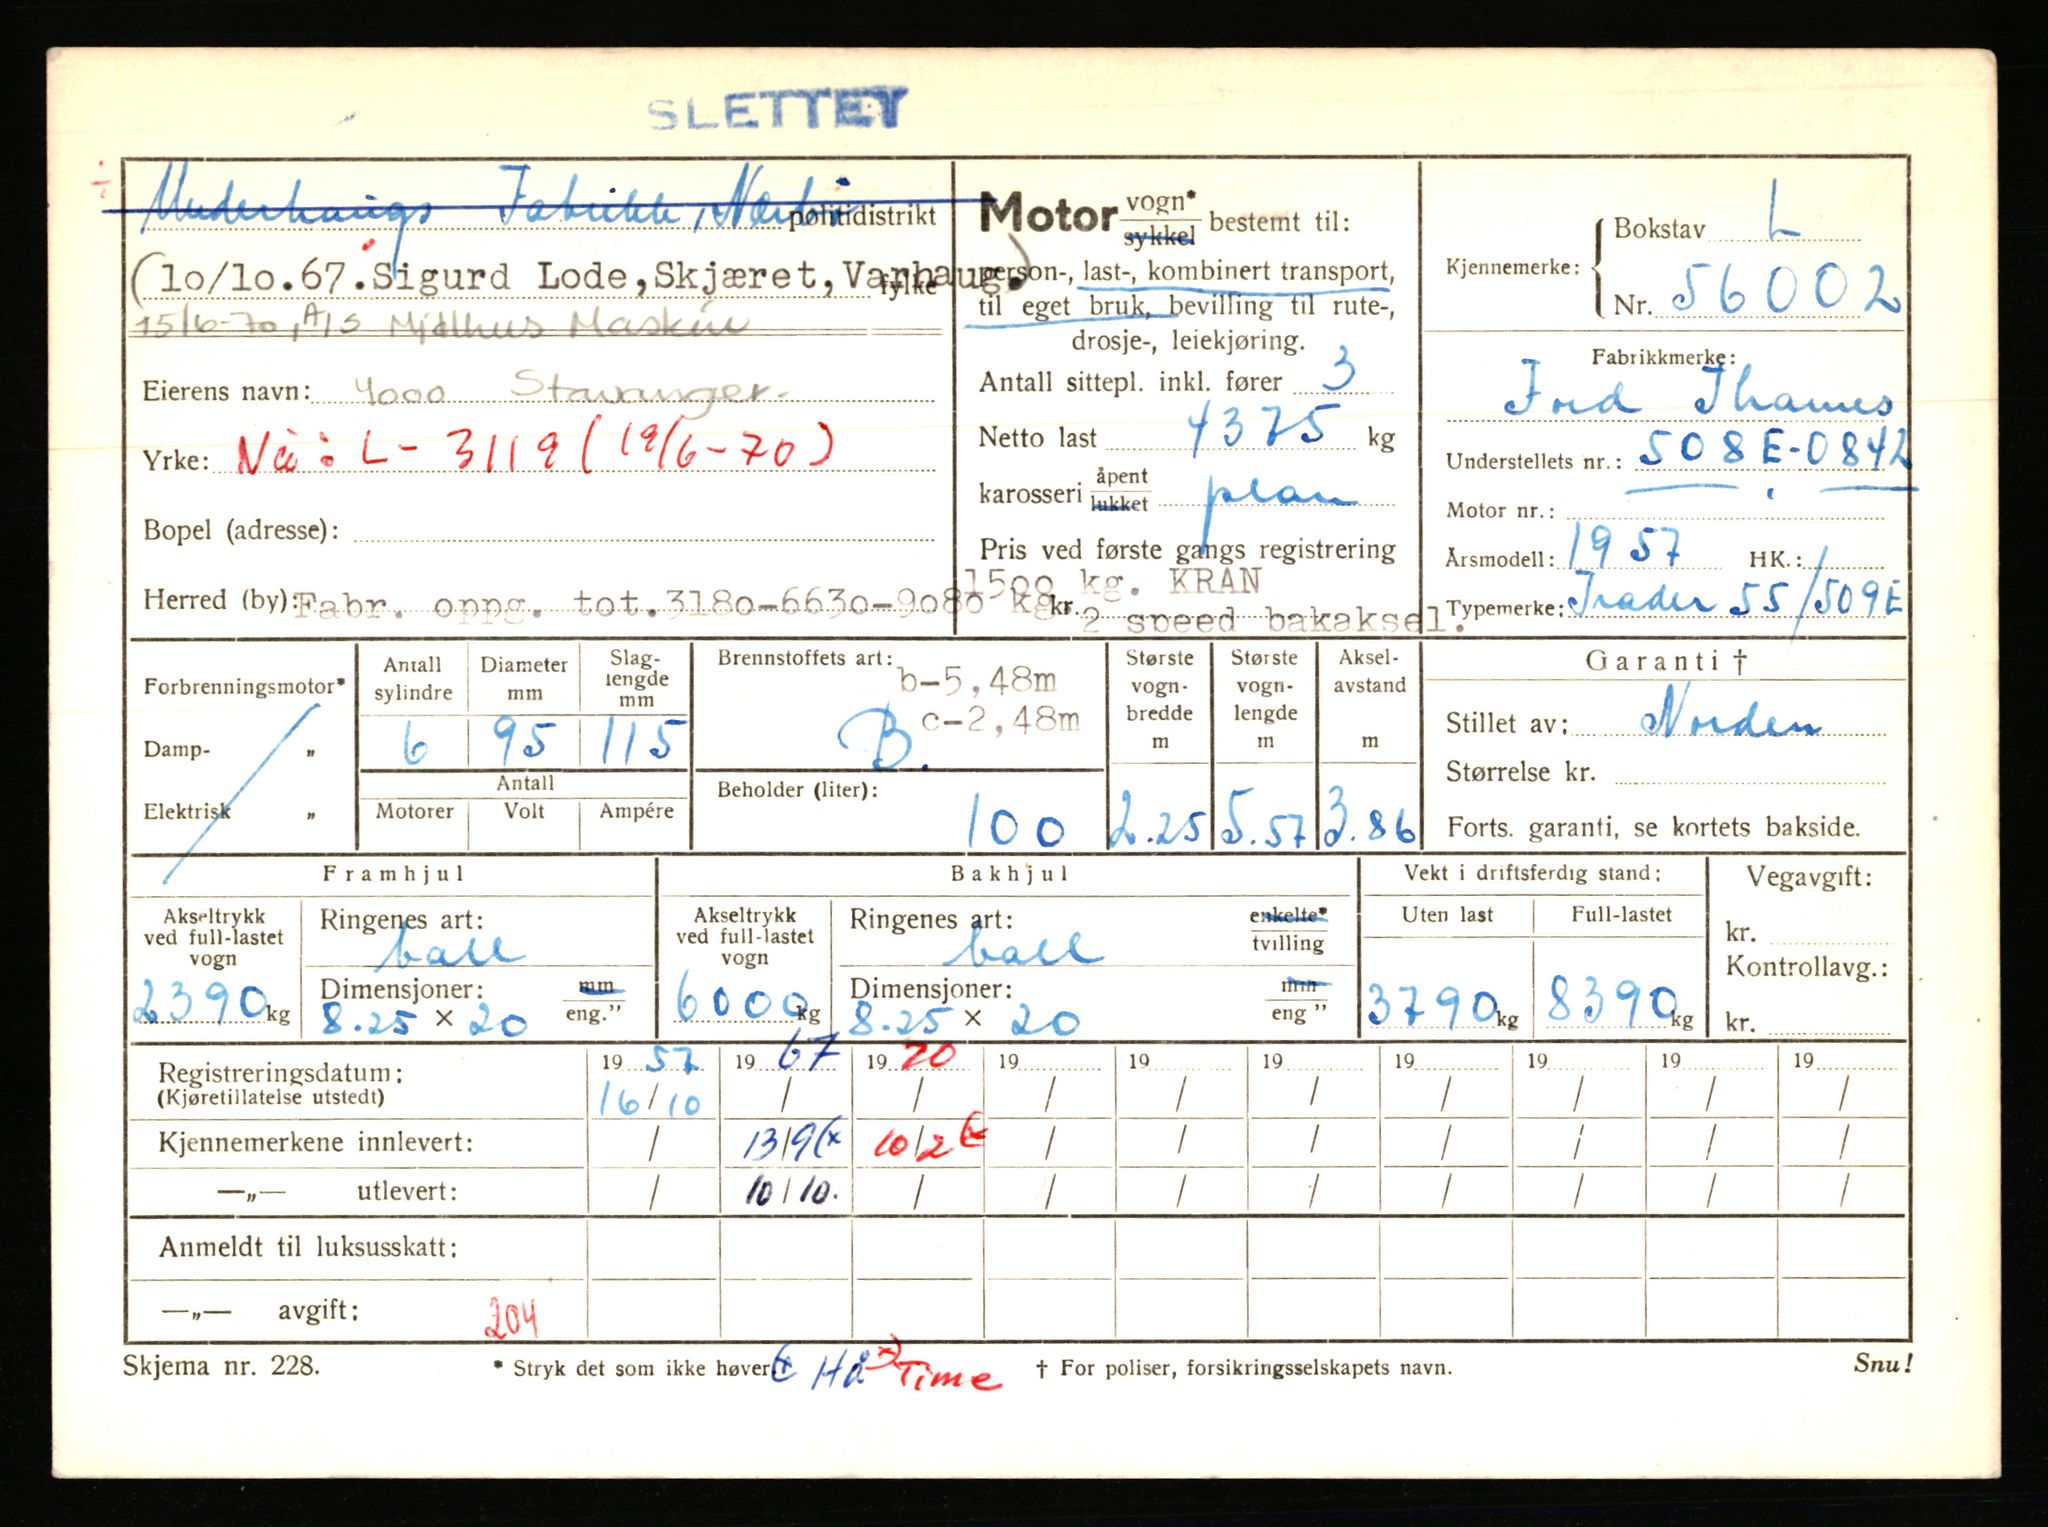 SLETTET
Fabrikk, Nærbø politidistrikt
(10/10.67.Sigurd Lode,Skjæret,Varhaug.) fylke
15/6-70, A/S Mjølhus Maskin
Eierens navn: 4000 Stavanger.
Yrke: Nå: L-3119 (19/6-70)
Bopel (adresse):
Herred (by): Fabr. oppg. tot.3180-6630-9080 kg
Motor vogn* sykkel bestemt til:
person-, last-, kombinert transport,
til eget bruk, bevilling til rute-,
drosje-, leiekjøring.
Antall sittepl. inkl. fører 3
Netto last 4375 kg
karosseri åpent lukket plan
Pris ved første gangs registrering
1500 kg. KRAN
kr. 2 speed bakaksel.
Kjennemerke: Bokstav L
Nr. 56002
Fabrikkmerke:
Ford Thames
Understellets nr.: 508E-0842
Motor nr.:
Årsmodell: 1957 HK.:
Typemerke: Trader 55/509E
Forbrenningsmotor*
Damp- „
Elektrisk „
Antall sylindre 6
Diameter mm 95
Slaglengde mm 115
Antall
Motorer Volt Ampére
Brennstoffets art: B.
b-5,48m
c-2,48m
Beholder (liter): 100
Største vognbredde m 2.25
Største vognlengde m 5.57
Akselavstand m 3.86
Garanti †
Stillet av: Norden
Størrelse kr.
Forts. garanti, se kortets bakside.
Framhjul
Akseltrykk ved full-lastet vogn 2390 kg
Ringenes art: ball
Dimensjoner: mm eng.”
8.25 × 20
Bakhjul
Akseltrykk ved full-lastet vogn 6000 kg
Ringenes art: ball enkelte* tvilling
Dimensjoner: mm eng ”
8.25 × 20
Vekt i driftsferdig stand:
Uten last Full-lastet
3790 kg 8390 kg
Vegavgift:
kr.
Kontrollavg.:
kr.
19 57 19 67 19 70 19 19 19 19 19 19 19
Registreringsdatum:
(Kjøretillatelse utstedt) 16/10 / / / / / / / / /
Kjennemerkene innlevert: / 13/9(x 10/2(x / / / / / / /
—„— utlevert: / 10/10. / / / / / / / /
Anmeldt til luksusskatt:
—„— avgift: 204
Skjema nr. 228. * Stryk det som ikke høver. (x Hå x) Time † For poliser, forsikringsselskapets navn. Snu!